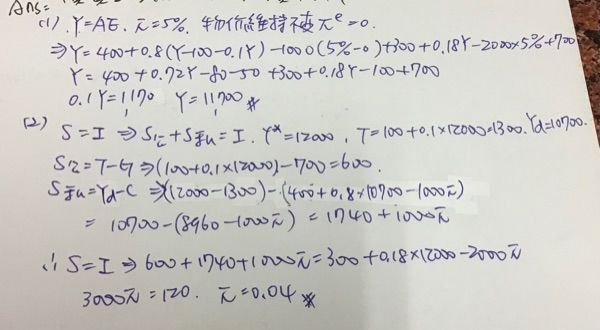 Ans=
(1). Y=AE. r̄=5%. 物價維持不變 πᵉ=0.
⇒Y=400+0.8(Y-100-0.1Y)-1000(5%-0)+300+0.18Y-2000×5%+700
Y=400+0.72Y-80-50+300+0.18Y-100+700
0.1Y=1170 Y=11700 *
(2) S=I ⇒ S公+S私=I. Y*=12000, T=100+0.1×12000=1300. Yd=10700.
S公=T-G⇒(100+0.1×12000)-700=600.
S私=Yd-C ⇒(12000-1300)-(400+0.8×10700-1000r̄)
= 10700-(8960-1000r̄) = 1740+1000r̄
∴ S=I ⇒ 600+1740+1000r̄=300+0.18×12000-2000r̄
3000r̄=120. r̄=0.04 *